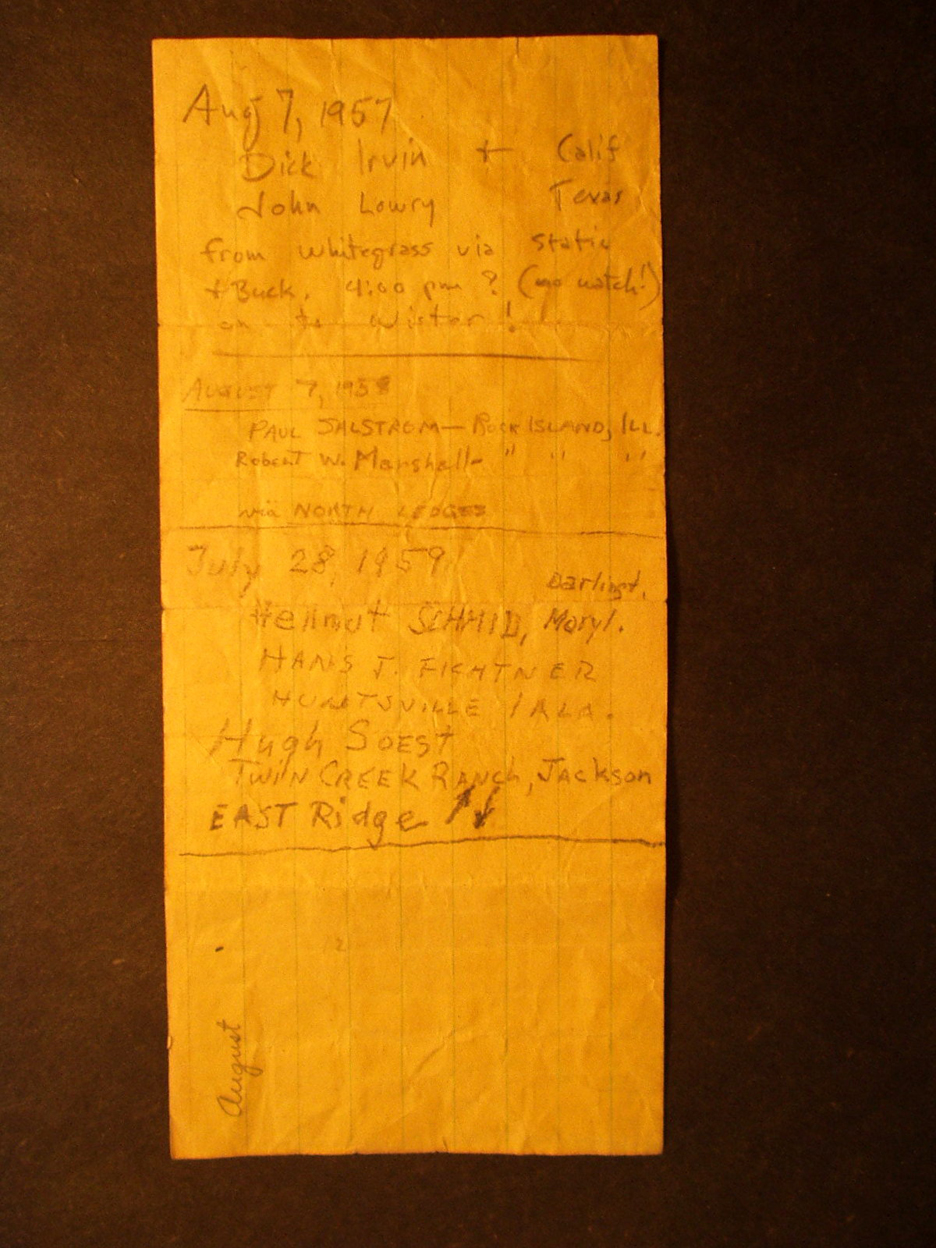 Aug 7, 1957
Dick Irvin + Calif
John Lowry Texas
from Whitegrass via Static
+ Buck. 4:00 pm ? (no watch!)
on to Wister!
AUGUST 7, 1958
PAUL SALSTROM — ROCK ISLAND, ILL.
Robert W. Marshall - " " "
via NORTH LEDGES
July 28, 1959
Darlingt.
Helmut SCHMID, Maryl.
HANS J. FICHTNER
HUNTSVILLE / ALA.
Hugh SOEST
TWIN CREEK RANCh, JACKSON
EAST Ridge
12
August